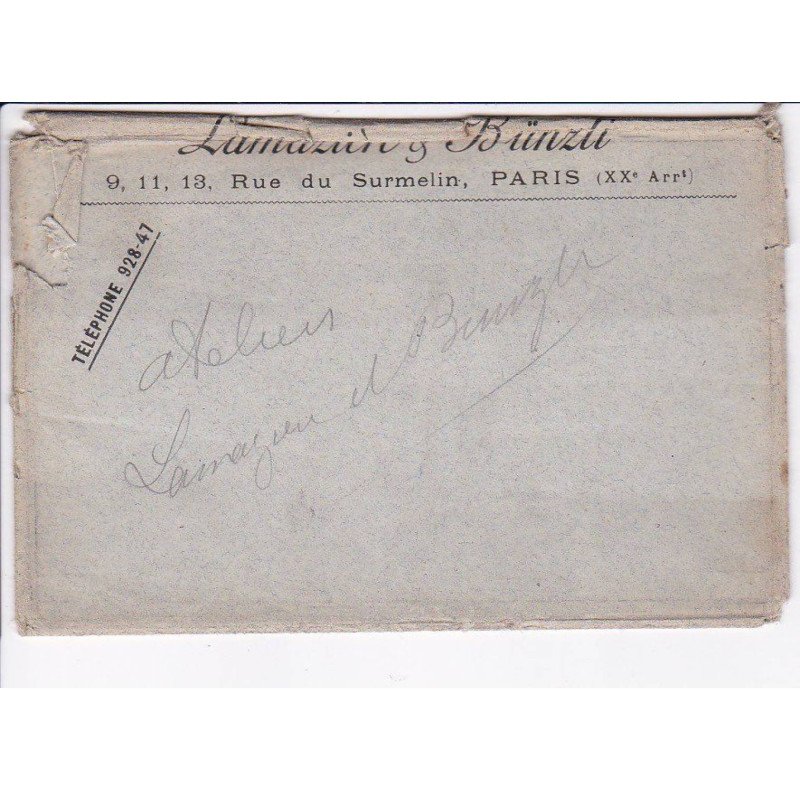 Lamazuin & Bünzli
9, 11, 13, Rue du Surmelin, PARIS (XXe Arrt)
TÉLÉPHONE 928-47
Ateliers
Lamazuin et Bunzli